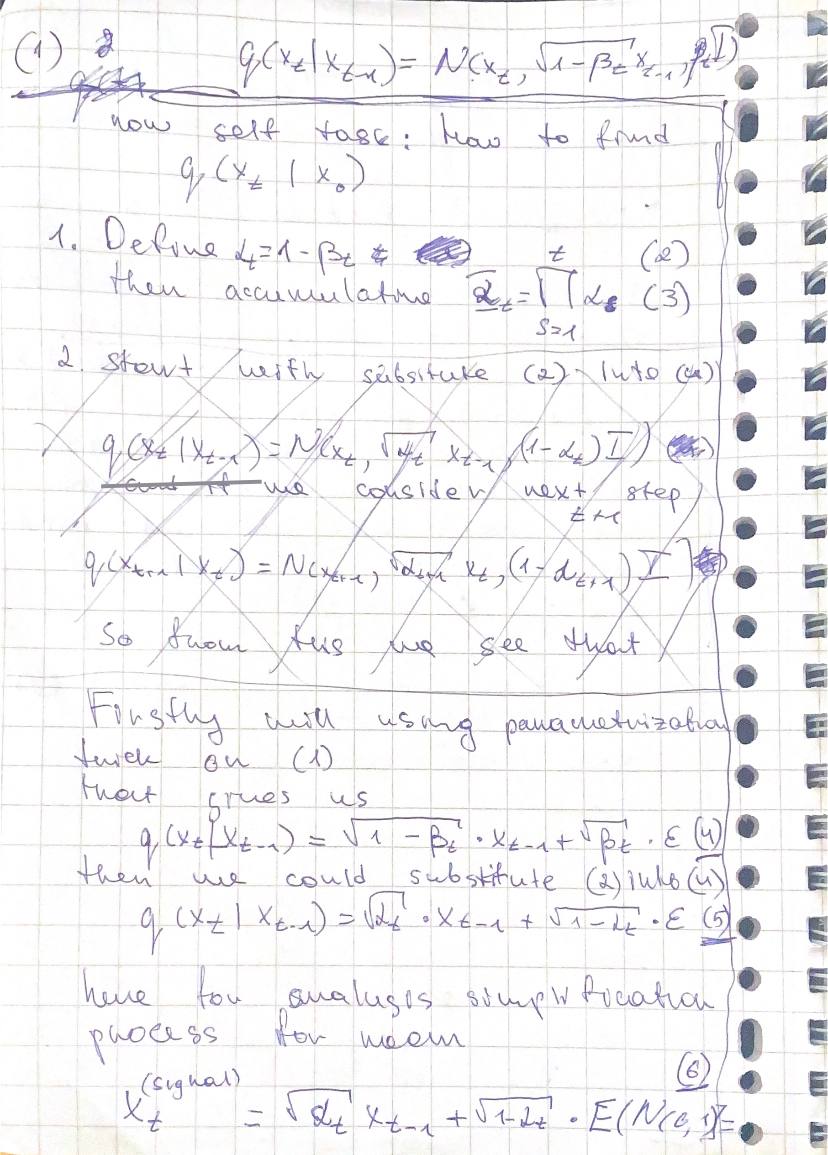 (1) q(x_t|x_{t-1}) = N(x_t, √(1-β_t) x_{t-1}, β_t I)
now self task: how to find
q(x_t | x_0)
1. Define α_t = 1 - β_t (2)
then accumulative ᾱ_t = ∏_{s=1}^{t} α_s (3)
2. Start with subsitute (2) into (1)
q(x_t | x_{t-1}) = N(x_t, √α_t x_{t-1}, (1-α_t) I)
and if we consider next step
t+1
q(x_{t+1} | x_t) = N(x_{t+1}, √α_{t+1} x_t, (1-α_{t+1}) I)
So from this we see that
Firstly will using parametrization
trick on (1)
that gives us
q(x_t | x_{t-1}) = √(1-β_t) · x_{t-1} + √β_t · ε (4)
then we could substitute (2) into (4)
q(x_t | x_{t-1}) = √α_t · x_{t-1} + √(1-α_t) · ε (5)
here for analysis simplification
process for mean
(6)
x_t (signal) = √α_t x_{t-1} + √(1-α_t) · E(N(0,1)) =